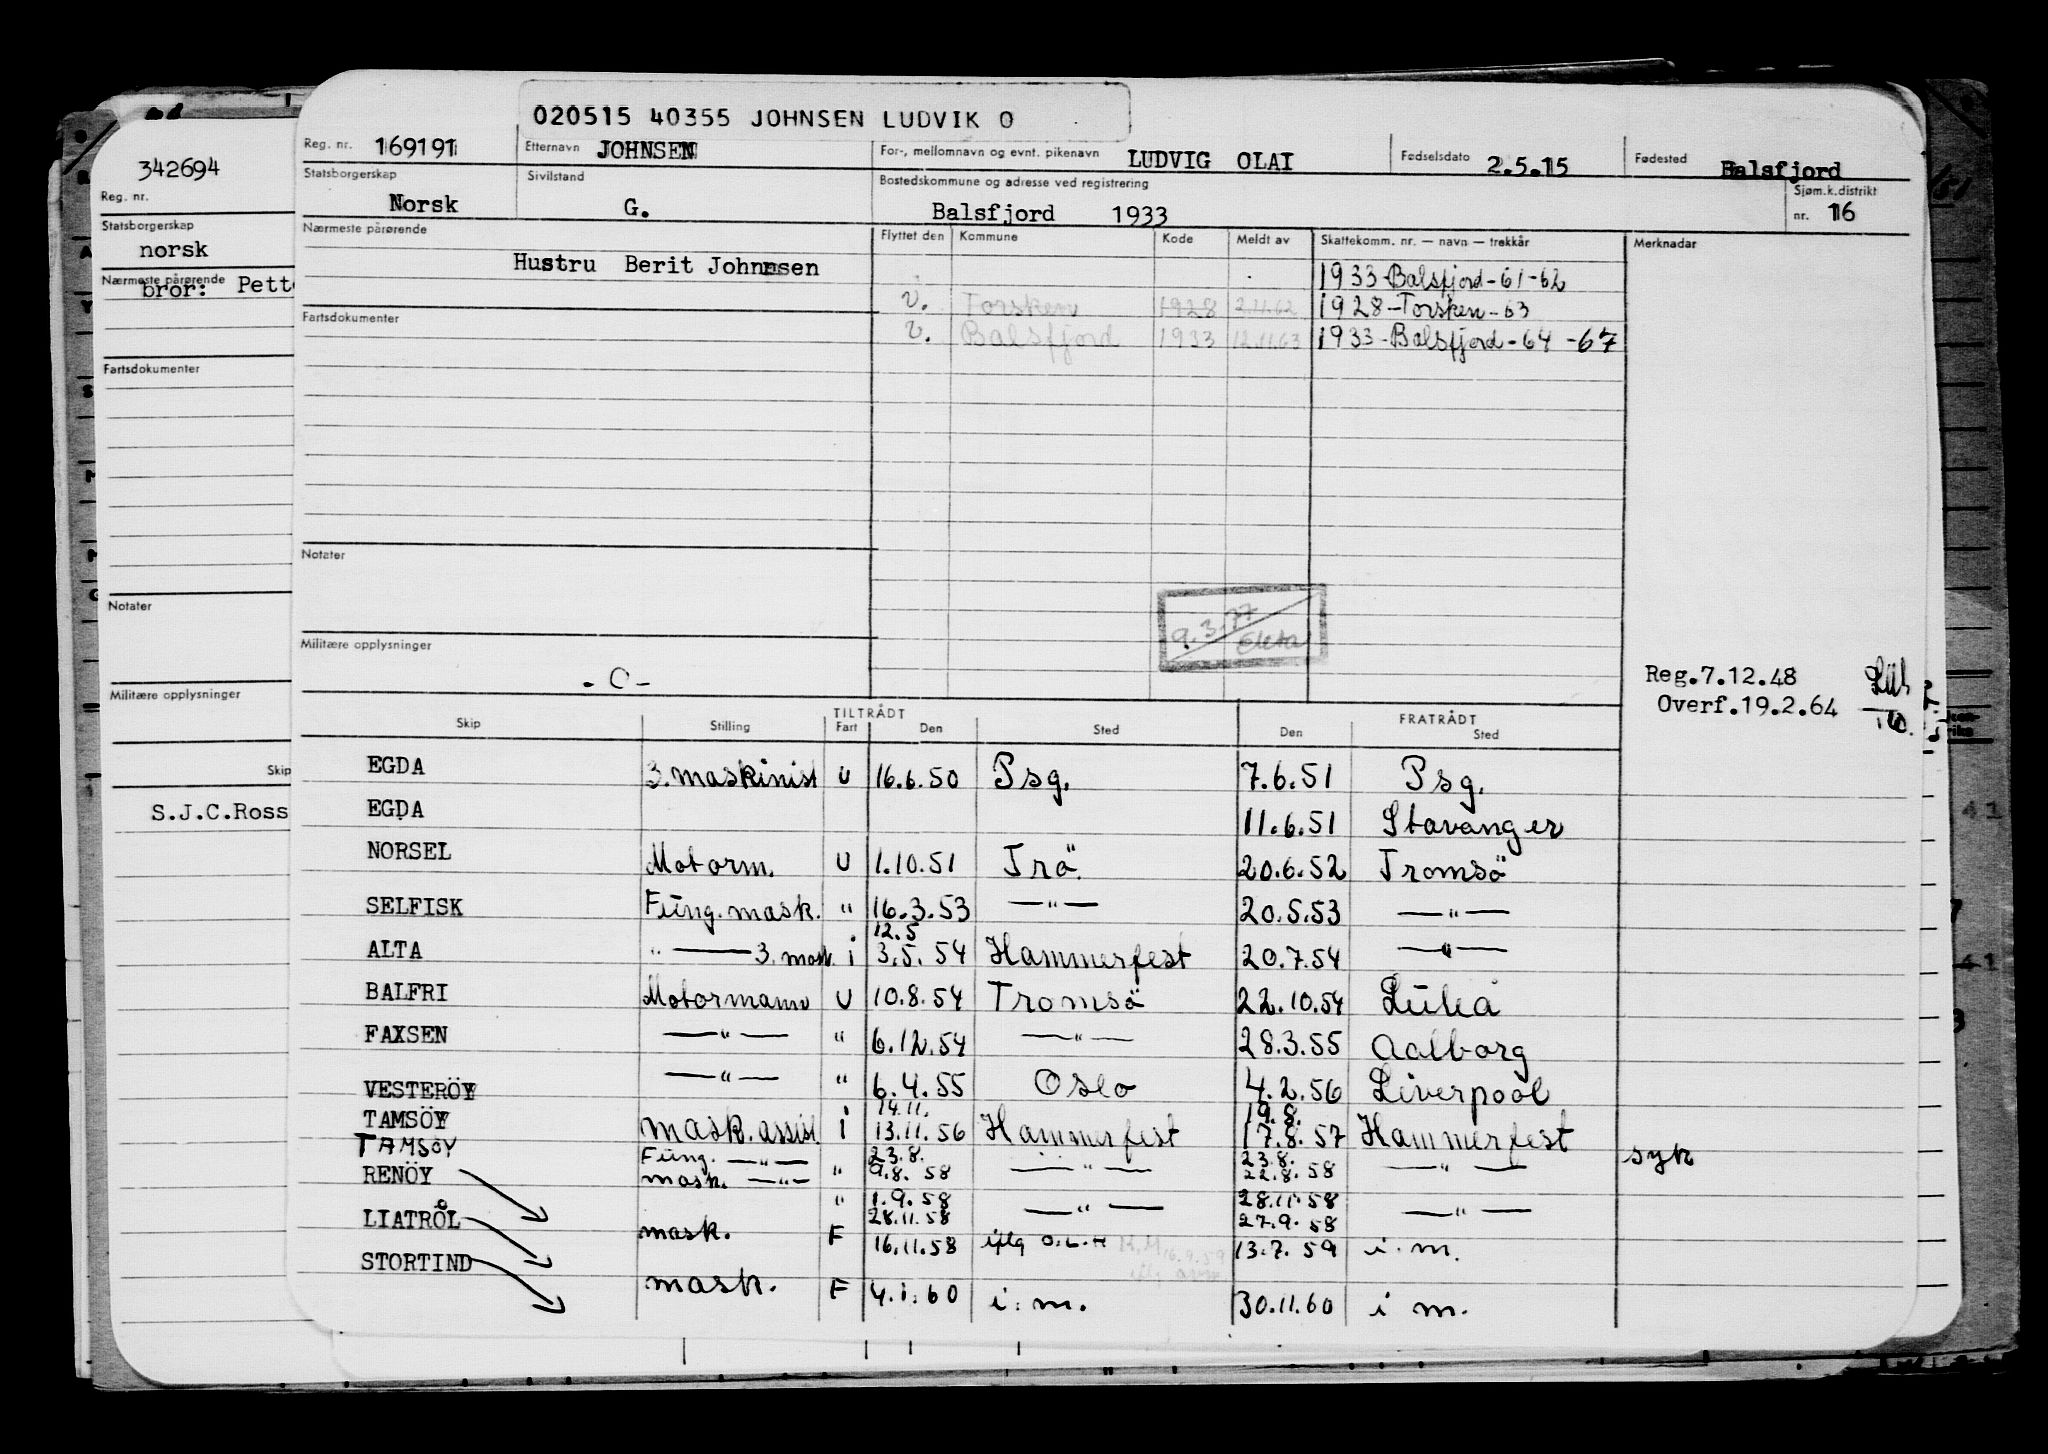 020515 40355 JOHNSEN LUDVIK O
Reg. nr. 169191 Etternavn JOHNSEN For-, mellomnavn og evnt. pikenavn LUDVIG OLAI Fødselsdato 2.5.15 Fødested Balsfjord
Statsborgerskap Norsk Sivilstand G. Bostedskommune og adresse ved registrering Balsfjord 1933 Sjøm.k.distrikt nr. 16
Nærmeste pårørende Flyttet den Kommune Kode Meldt av Skattekomm. nr. — navn — trekkår Merknadar
Hustru Berit Johnnsen 1933-Balsfjord-61-62
v. Torsken 1928 2.11.62 1928-Torsken-63
Fartsdokumenter v. Balsfjord 1933 12.11.63 1933-Balsfjord-64-67
Notater
9.3.77
Militære opplysninger
- O -
Reg.7.12.48
Overf.19.2.64
TILTRÅDT FRATRÅDT
Skip Stilling Fart Den Sted Den Sted
EGDA 3. maskinist U 16.6.50 Psg. 7.6.51 Psg.
EGDA 11.6.51 Stavanger
NORSEL Motorm. U 1.10.51 Trö. 20.6.52 Tromsö
SELFISK Fung. mask. " 16.3.53 —"— 20.5.53 —"—
12.5
ALTA " — 3. mask. i 3.5.54 Hammerfest 20.7.54 —"—
BALFRI Motormann U 10.8.54 Tromsö 22.10.54 Luleå
FAXSEN —"— " 6.12.54 —"— 28.3.55 Aalborg
VESTERÖY —"— " 6.4.55 Oslo 4.2.56 Liverpool
14.11. 19.8.
TAMSÖY mask. assist. i 13.11.56 Hammerfest 17.8.57 Hammerfest
TAMSÖY Fung. —"— 23.8. 23.8. syk
RENÖY mask. —"— " 9.8.58 —"— 22.8.58 —"—
" 1.9.58 —"— 28.11.58 —"—
28.11.58 27.9.58
LIATRÅL mask. F 16.11.58 iflg O.L.H 16.9.59 13.7.59 i. m.
STORTIND mask. F 4.1.60 i. m. 30.11.60 i m.
342694
Reg. nr.
Statsborgerskap
norsk
Nærmeste pårørende
bror: Pett
Fartsdokumenter
Notater
Militære opplysninger
Skip
S.J.C.Ross